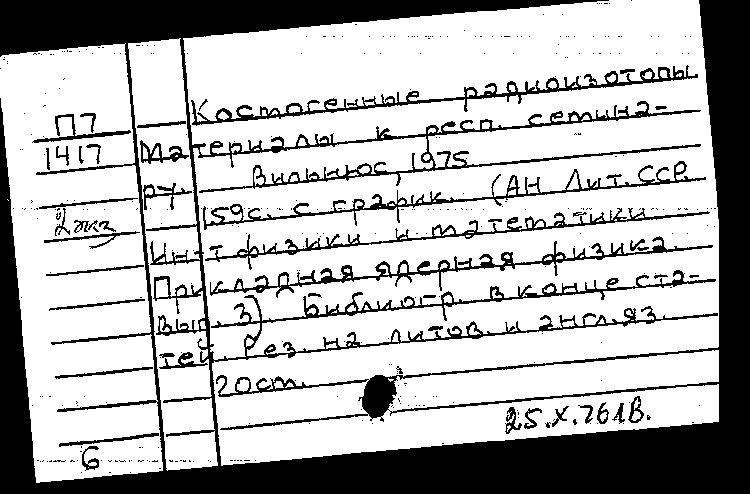 Костогенные радиоизотопы
П7
1417
Материалы к респ. семина-
ру. Вильнюс, 1975
2 экз
159с. с график. (АН Лит.ССР.
Ин-т физики и математики
Прикладная ядерная физика.
вып. 3). Библиогр. в конце ста-
тей. Рез. на литов. и англ.яз.
20ст.
25.X.761В.
6